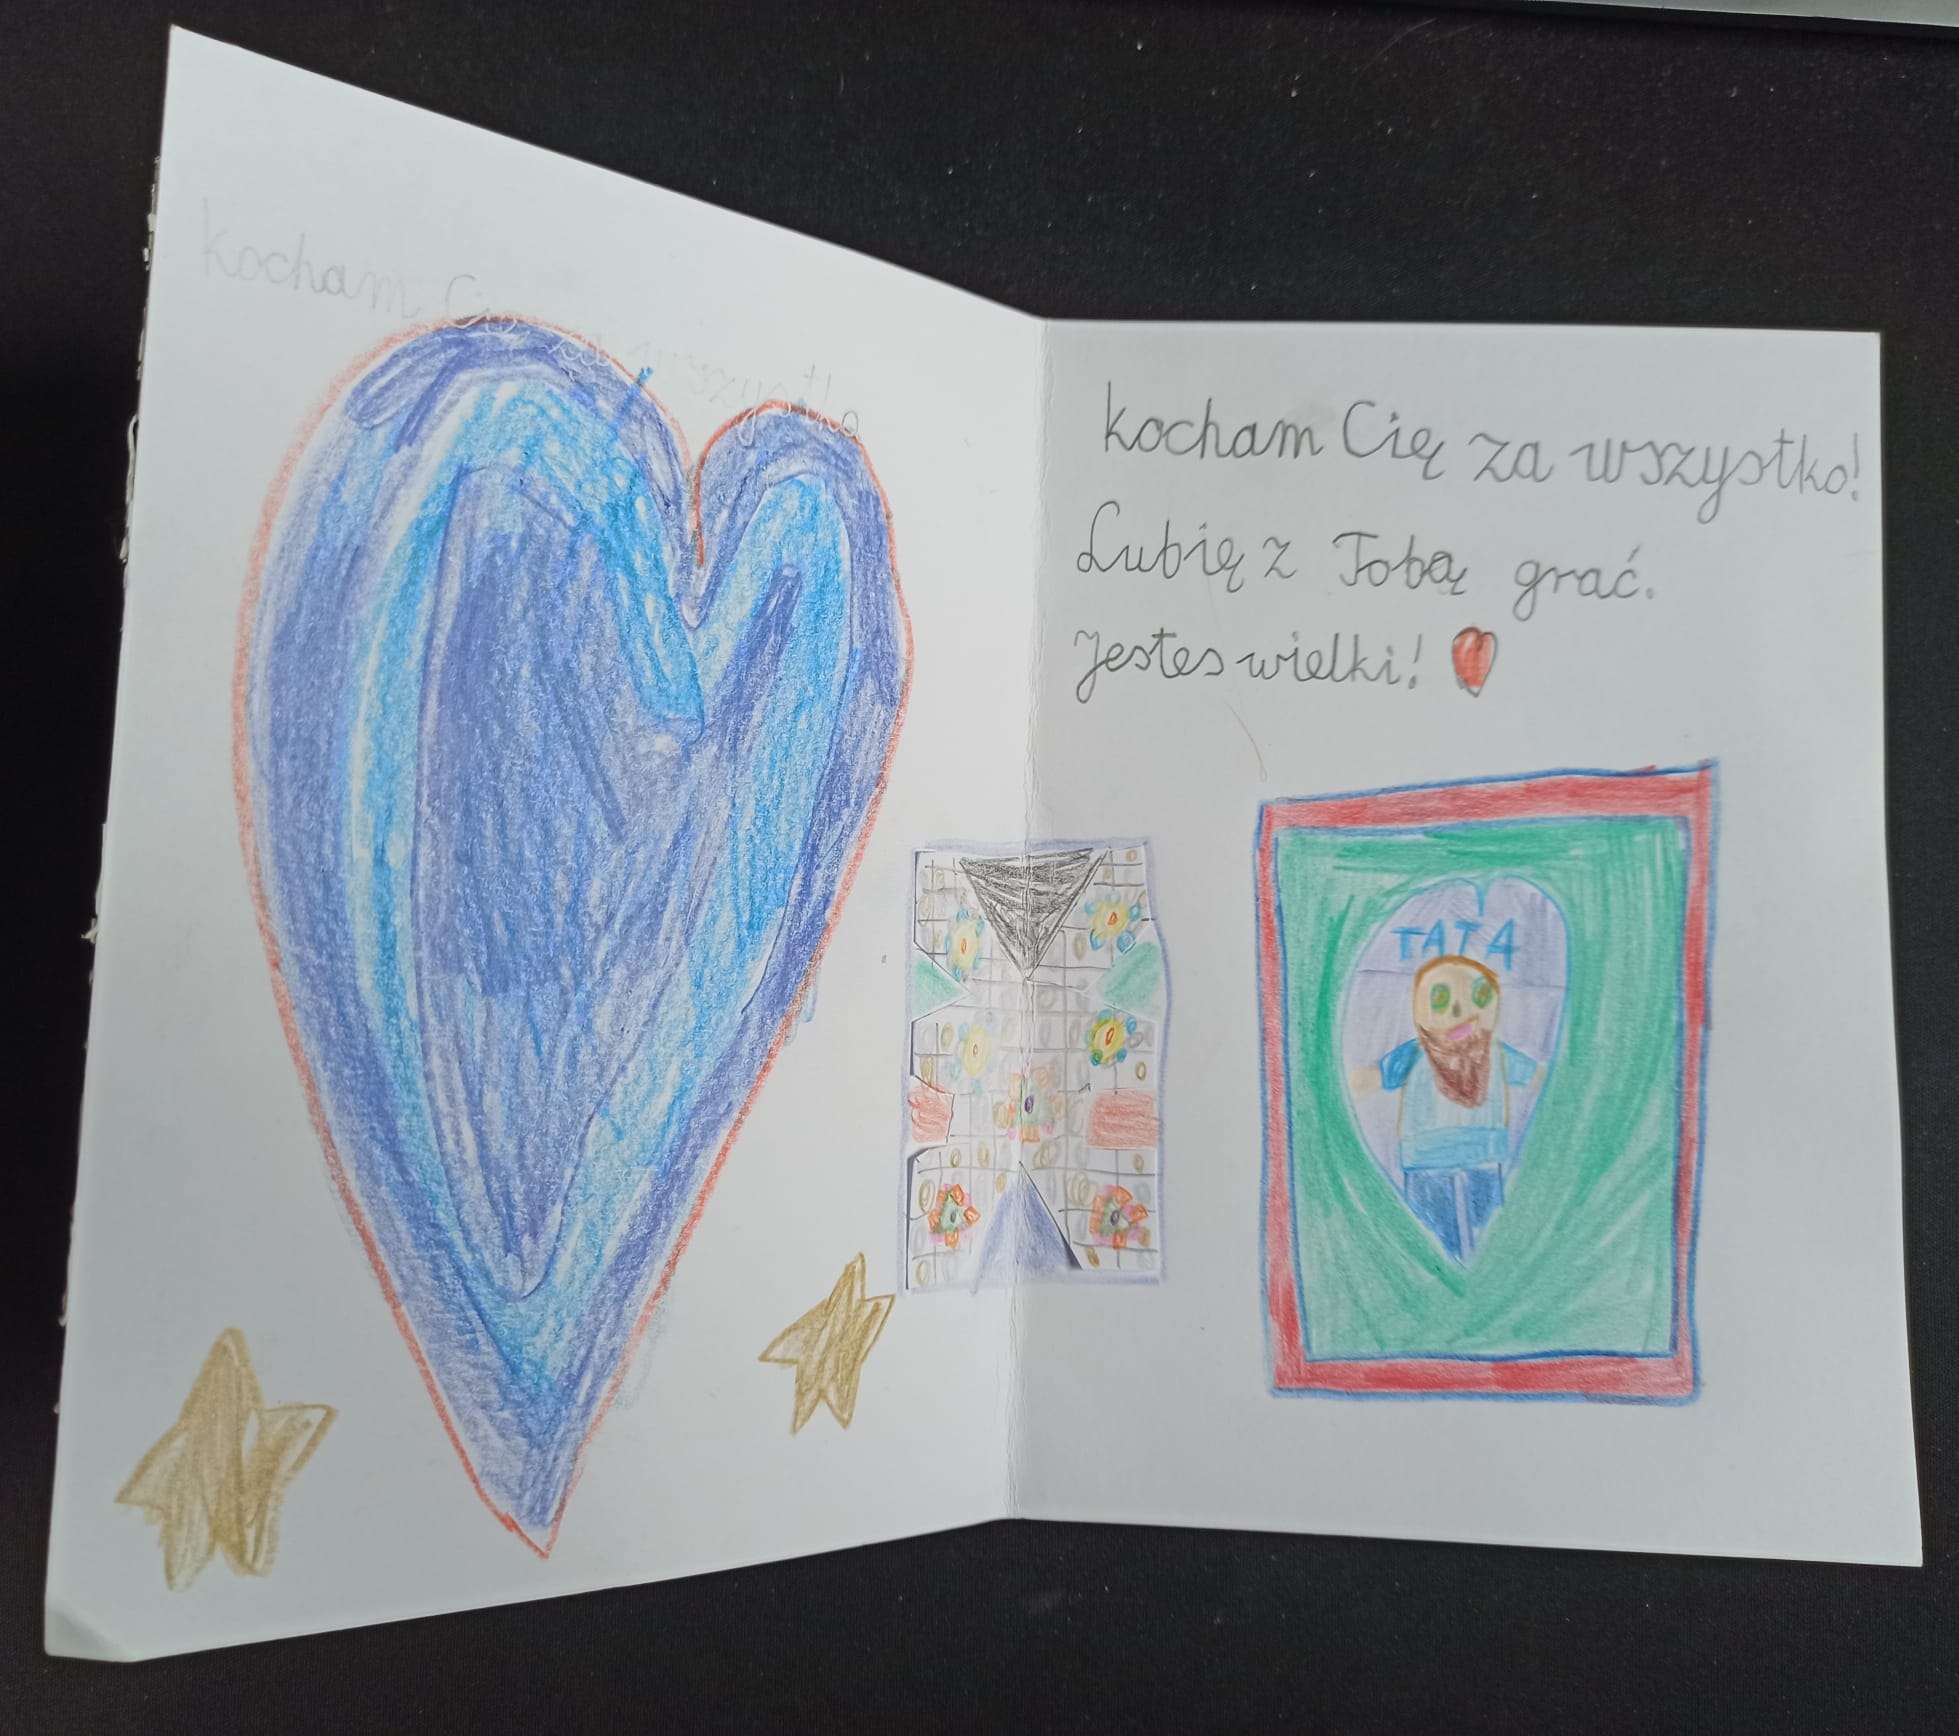 kocham Cię za wszystko
kocham Cię za wszystko!
Lubię z Tobą grać.
Jestes wielki!
TATA